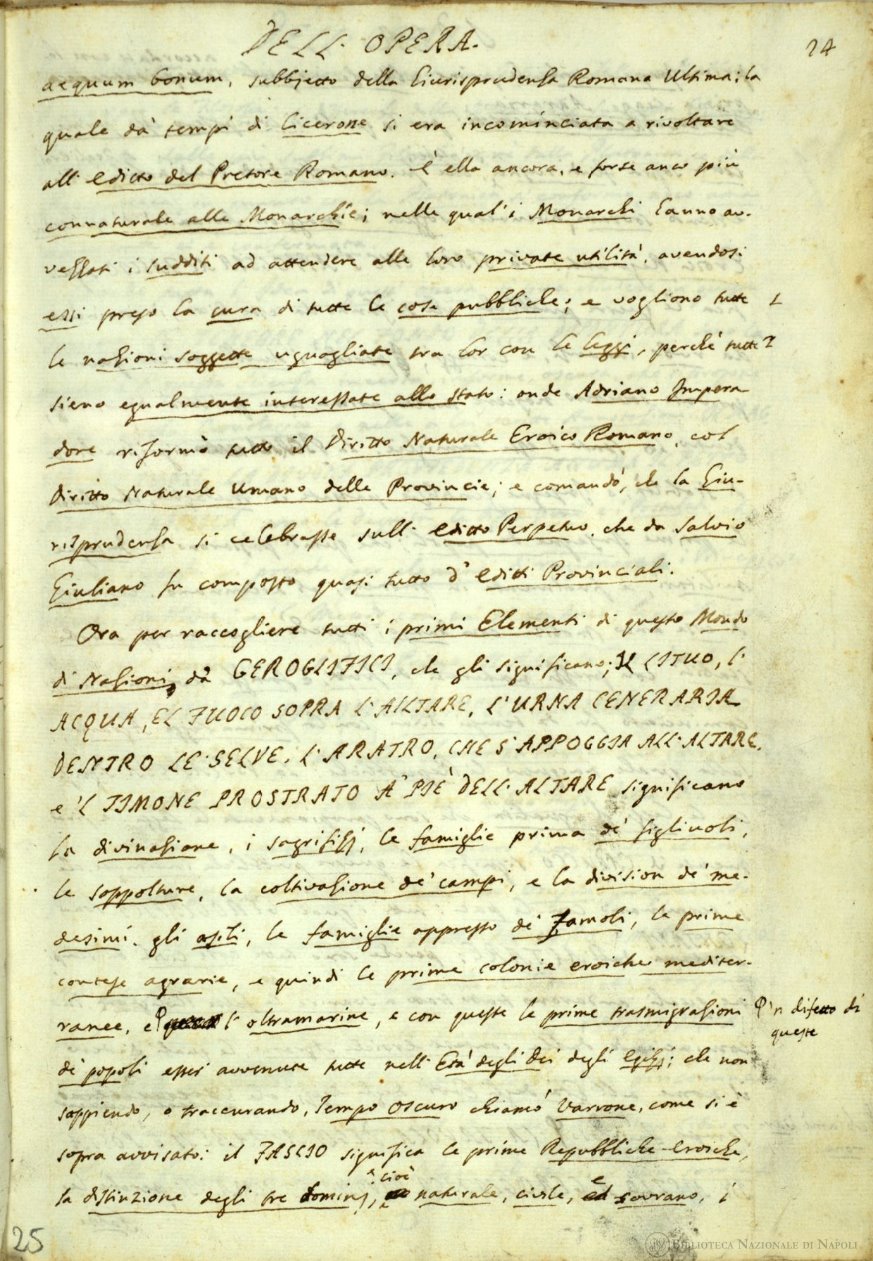 DELL'OPERA.
24
aequum bonum, subbjetto della Giurisprudenza Romana Ultima; la
quale da' tempi di Cicerone si era incominciata a rivoltare
all'editto del Pretore Romano. è ella ancora, e forse anco più
connaturale alle Monarchie; nelle qual' i Monarchi hanno av-
vezzati i sudditi ad attendere alle loro private utilità, avendosi
essi preso la cura di tutte le cose pubbliche; e vogliono tutte
le nazioni soggette uguagliate tra lor con le leggi, perché tutte
sieno egualmente interessate allo stato: onde Adriano Impera
dore riformò tutto il Diritto Naturale Eroico Romano, col
Diritto Naturale Umano delle Provincie; e comandò, che la Giu-
risprudenza si celebrasse sull'editto Perpetuo, che da Salvio
Giuliano fu composto quasi tutto d'editti Provinciali.
Ora per raccogliere tutti i primi Elementi di questo Mondo
di Nazioni, da' GEROGLIFICI, che gli significano; IL LITUO, l'
ACQUA, E'L FUOCO SOPRA L'ALTARE, L'URNA CENERARIA
DENTRO LE SELVE, L'ARATRO, CHE S'APPOGGIA ALL'ALTARE,
e'L TIMONE PROSTRATO A' PIÈ DELL'ALTARE significano
la divinazione, i sagrifizj, le famiglie prima de' figliuoli,
le seppolture, la coltivazione de' campi, e la division de' me-
desimi, gli asili, le famiglie appresso de' Famoli, le prime
contese agrarie, e quindi le prime colonie eroiche mediter-
ranee, e l'oltramarine, e con queste le prime trasmigrazioni
'n difetto di
queste
de' popoli esser avvenute tutte nell'Età degli Dei degli Egizj; che non
sappiendo, o traccurando, Tempo oscuro chiamò Varrone, come si è
sopra avvisato: il FASCIO significa le prime Repubbliche Eroiche,
la distinzione degli tre dominj, cioè naturale, civile, e sovrano, i
25
BIBLIOTECA NAZIONALE DI NAPOLI